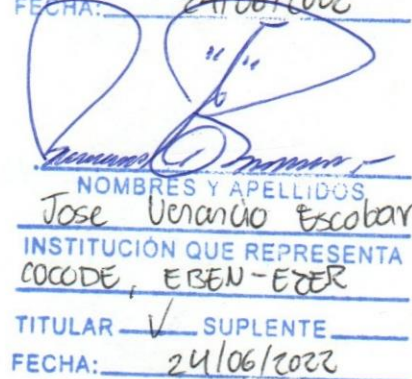 FECHA: 24/06/2022
NOMBRES Y APELLIDOS
Jose Venancio Escobar
INSTITUCIÓN QUE REPRESENTA
COCODE, EBEN-EZER
TITULAR V SUPLENTE
FECHA: 24/06/2022